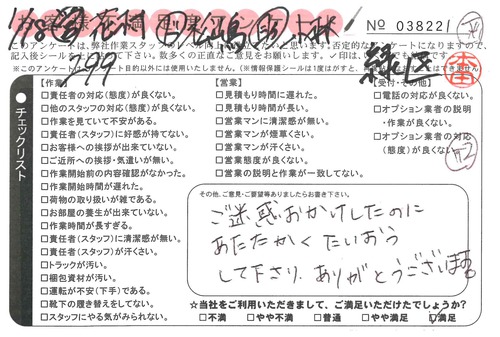 No 038221
このアンケートは、弊社作業スタッフのレベル向上
記入後シールをはがして下さい。数多くの正直なご意見をお願いします。✓印は、
※このアンケートは目的以外には使用いたしません。(※情報保護シールは1度はがすと、
緑区
チェックリスト
【作業】
□責任者の対応(態度)が良くない。
□他のスタッフの対応(態度)が良くない。
□作業を見ていて不安がある。
□責任者(スタッフ)に好感が持てない。
□お客様への挨拶が出来ていない。
□ご近所への挨拶・気遣いが無い。
□作業開始前の内容確認がなかった。
□作業開始時間が遅れた。
□荷物の取り扱いが雑である。
□お部屋の養生が出来ていない。
□作業時間が長すぎる。
□責任者(スタッフ)に清潔感が無い。
□責任者(スタッフ)が汗くさい。
□トラックが汚い。
□梱包資材が汚い。
□運転が不安(下手)である。
□靴下の履き替えをしてない。
□スタッフにやる気がみられない。
【営業】
□見積もり時間に遅れた。
□見積もり時間が長い。
□営業マンに清潔感が無い。
□営業マンが煙草くさい。
□営業マンが汗くさい。
□営業態度が良くない。
□営業の説明と作業が一致してない。
【受付・その他】
□電話の対応が良くない。
□オプション業者の説明
・作業が良くない。
□オプション業者の対応
(態度)が良くない。
その他、ご意見・ご要望等ありましたらお書き下さい。
ご迷惑おかけしたのに
あたたかくたいおう
して下さり、ありがとうございます
☆当社をご利用いただきまして、ご満足いただけたでしょうか?
□不満 □やや不満 □普通 □やや満足 ☑満足